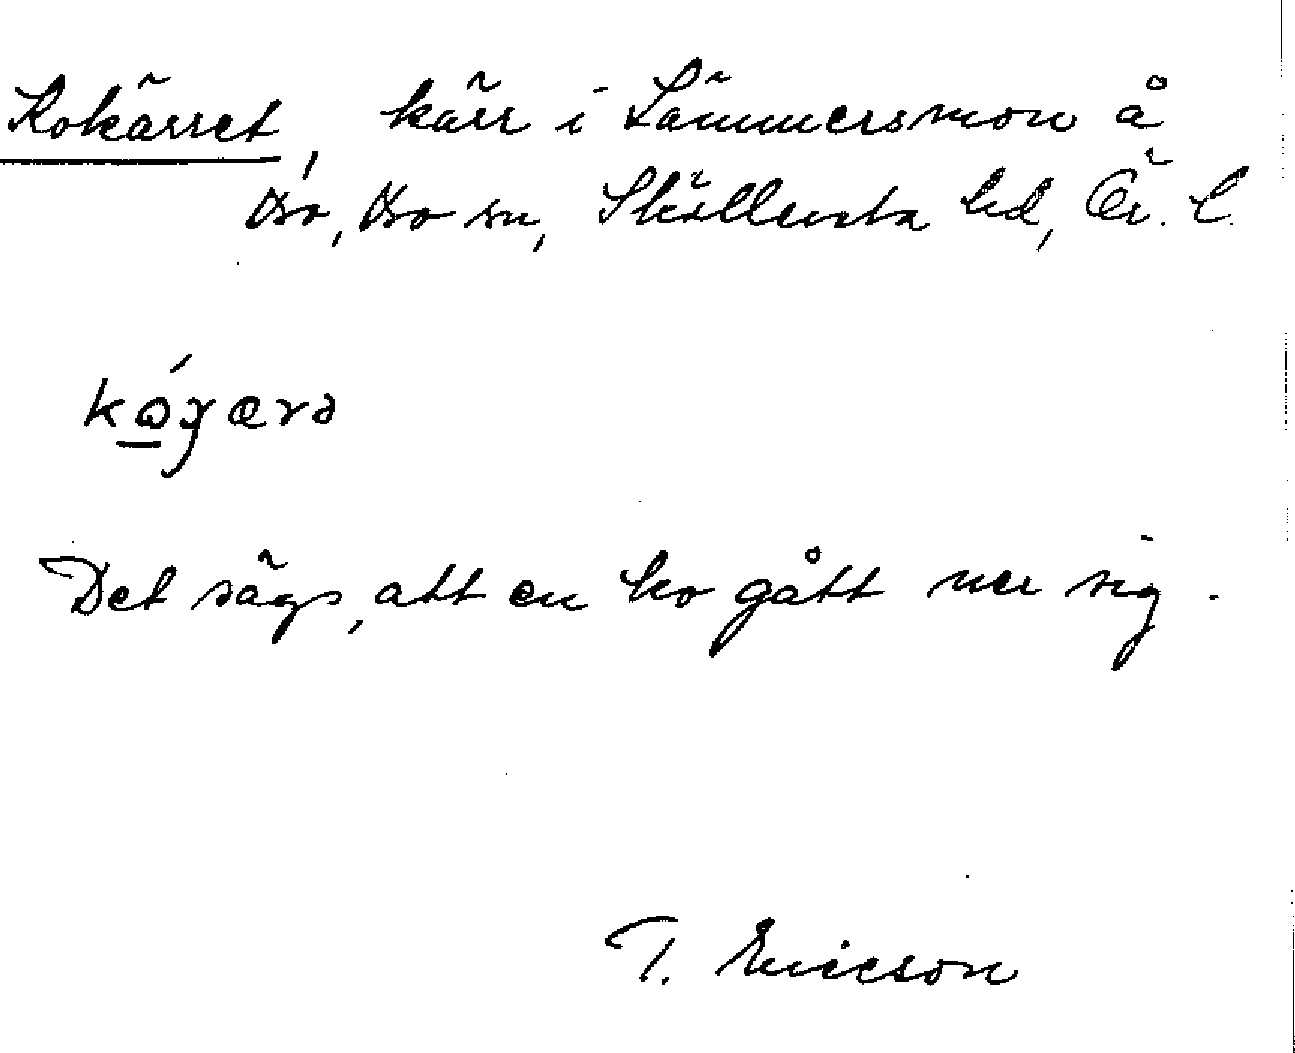 Kokärret, kärr i Lämmersmon å
Bo, Bo sn, Sköllersta hd, Ör. l.
Det sägs, att en ko gått ner sig.
T. Ericson